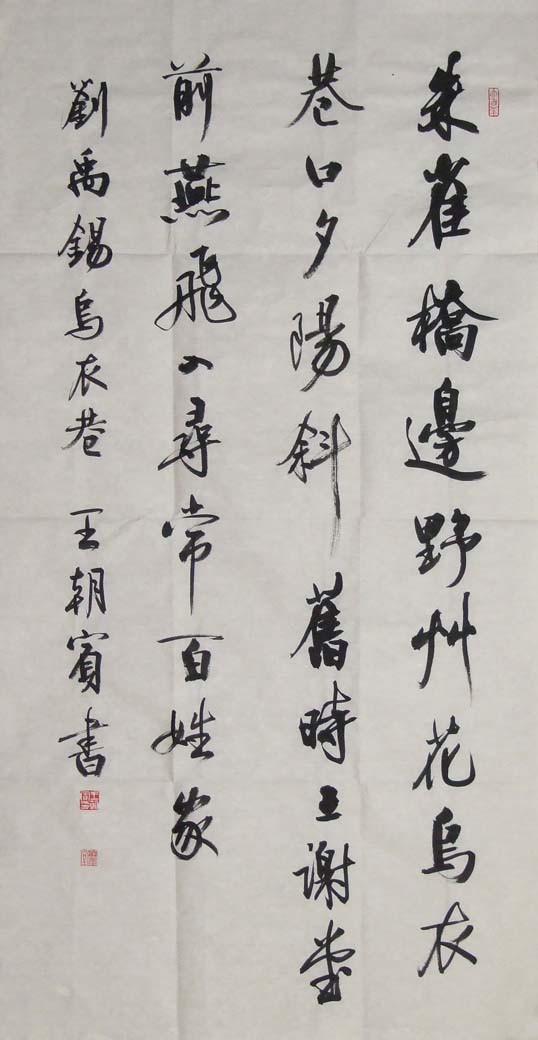 朱雀橋邊野艸花烏衣
巷口夕陽斜舊時王謝堂
前燕飛入尋常百姓家
劉禹錫烏衣巷 王朝賓書